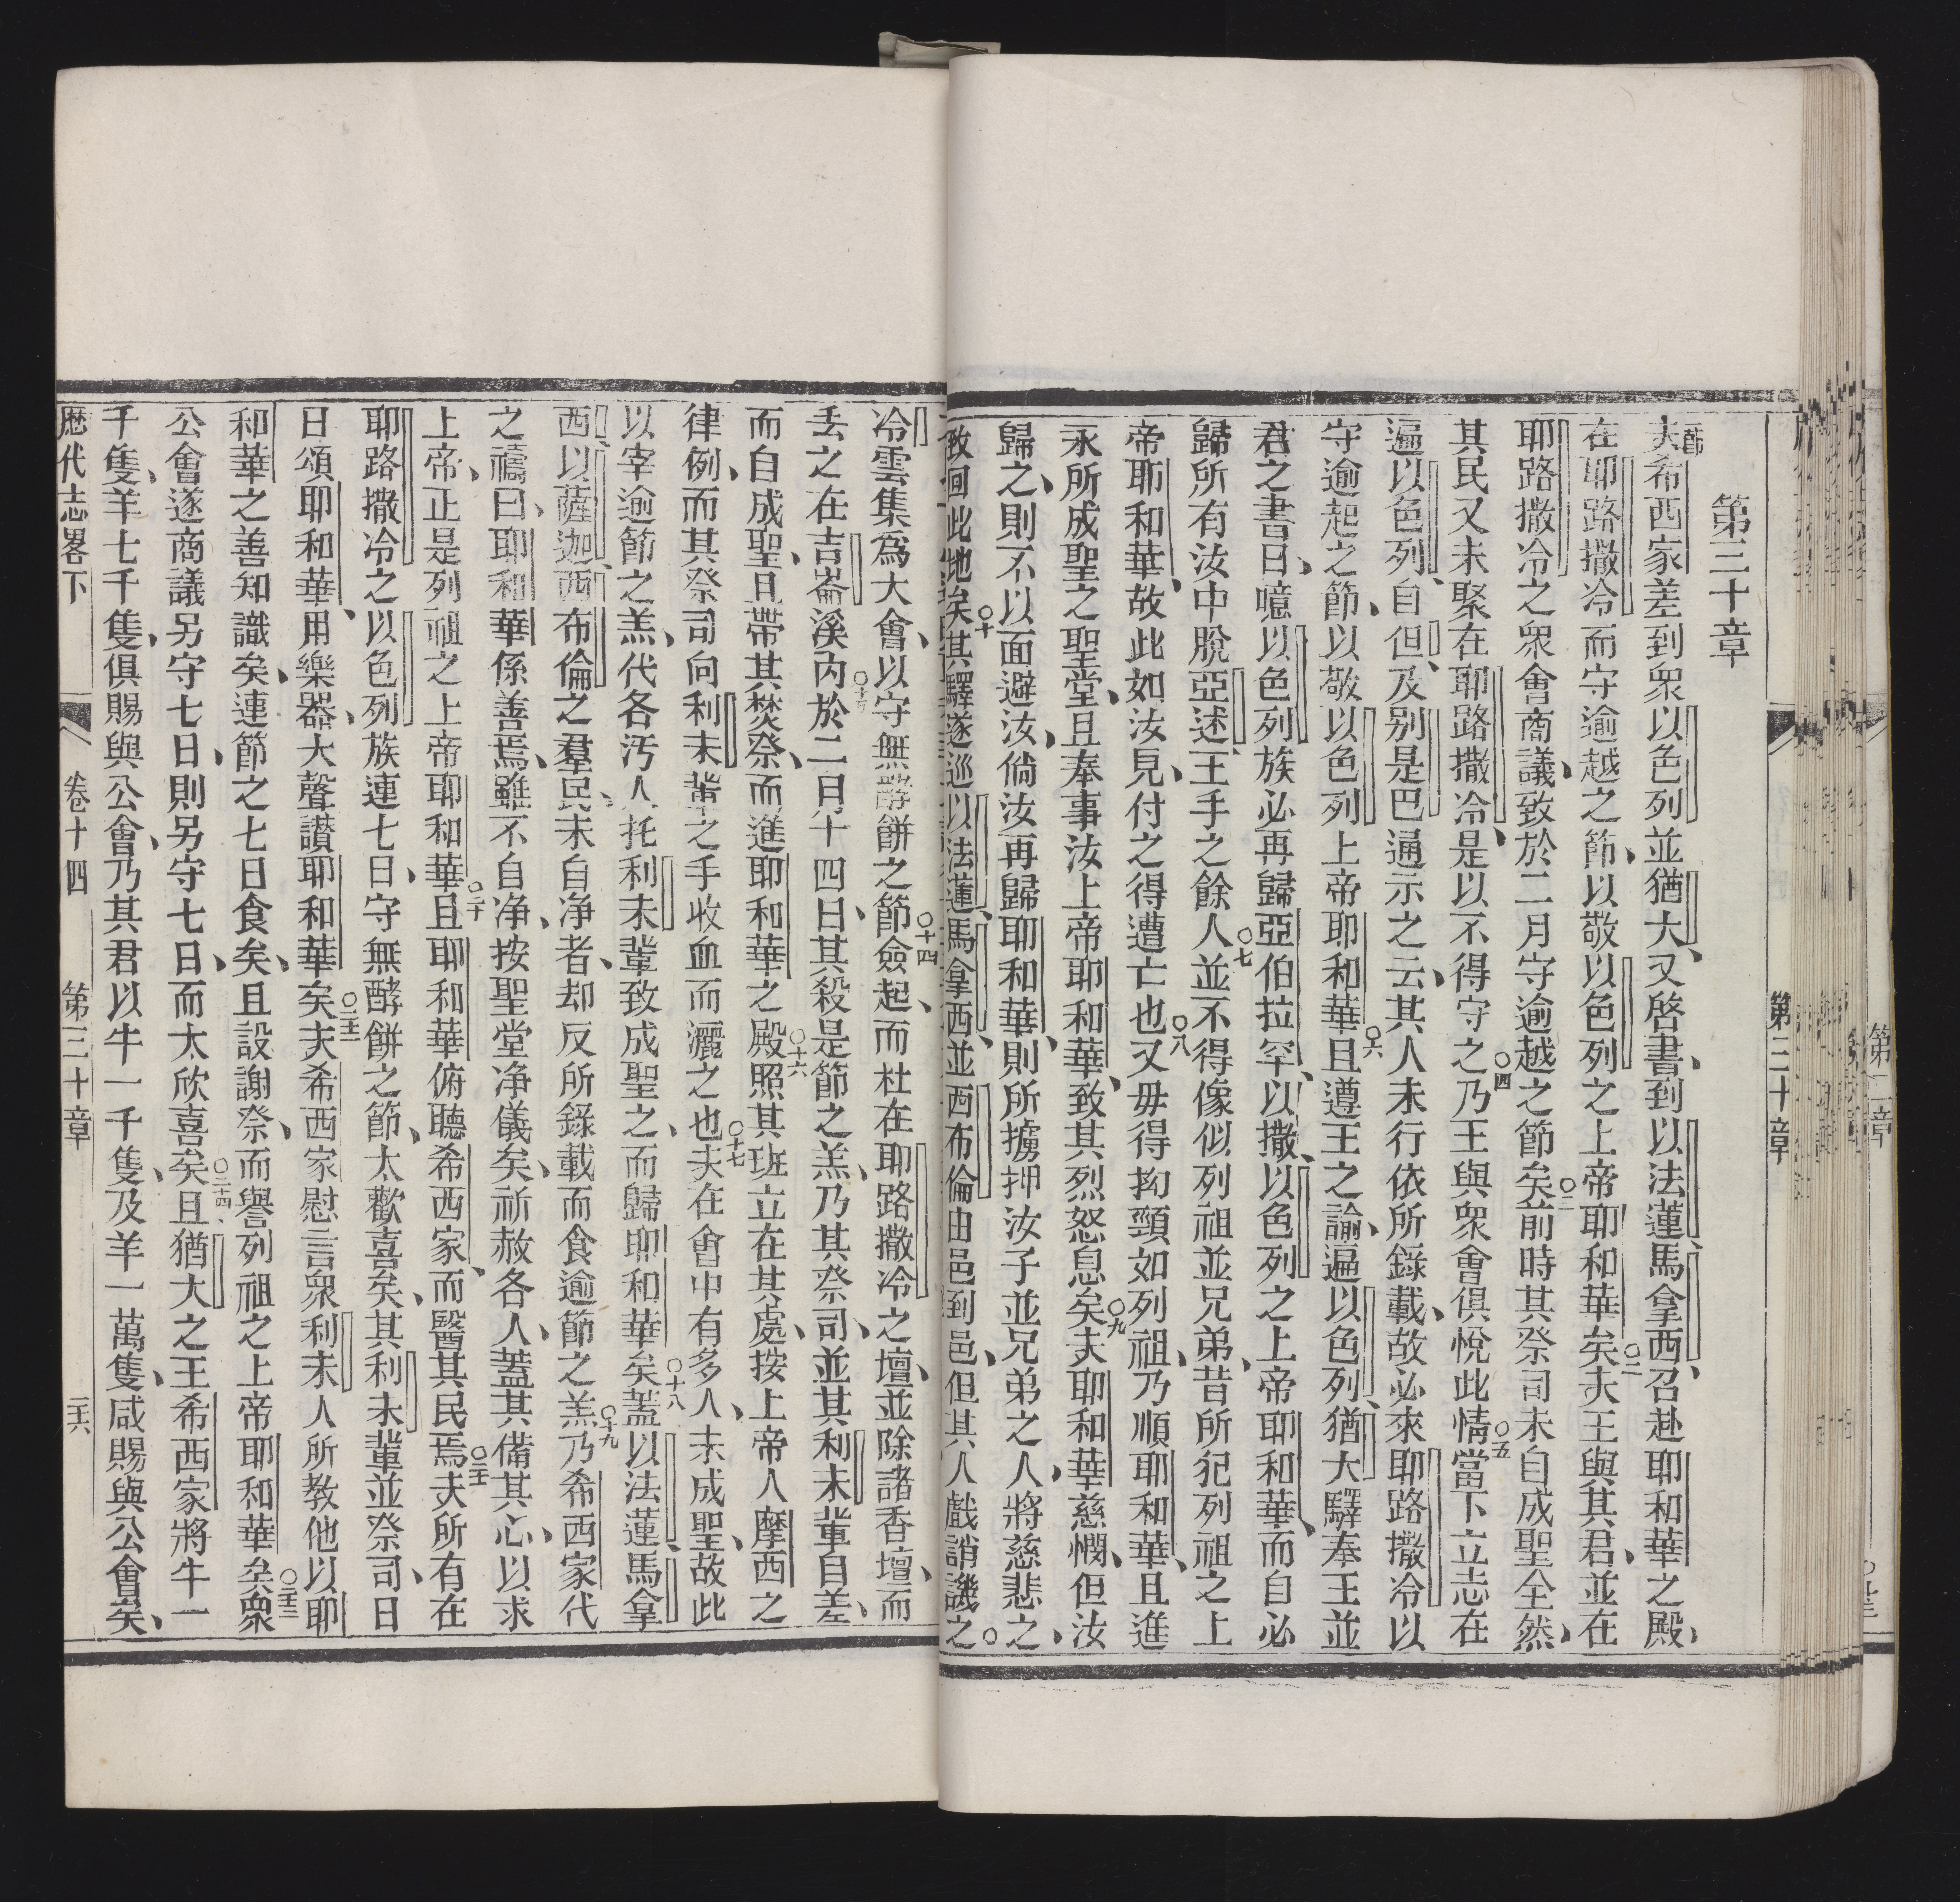 第三十章
一節夫希西家差到衆以色列並猶大、又啓書、到以法蓮、馬拿西、召赴耶和華之殿、
在耶路撒冷而守逾越之節、以敬以色列之上帝耶和華矣○二夫王與其君、並在
耶路撒冷之衆會商議、致於二月守逾越之節矣○三前時其祭司未自成聖全然、
其民又未聚在耶路撒冷、是以不得守之○四乃王與衆會俱悅此情○五當下立志在
遍以色列、自但、及别是巴通示之云、其人未行依所錄載、故必來耶路撒冷以
守逾起之節、以敬以色列上帝耶和華○六且遵王之諭、遍以色列、猶大驛奉王並
君之書曰、噫以色列族必再歸亞伯拉罕、以撒、以色列之上帝耶和華、而自必
歸所有汝中脫亞述王手之餘人○七並不得像似列祖並兄弟、昔所犯列祖之上
帝耶和華、故此如汝見、付之得遭亡也○八又毋得拗頸如列祖、乃順耶和華、且進
永所成聖之聖堂、且奉事汝上帝耶和華、致其烈怒息矣○九夫耶和華慈憫、但汝
歸之、則不以面避汝、倘汝再歸耶和華、則所擄押汝子並兄弟之人、將慈悲之、
致回此地矣○十其驛遂巡以法蓮、馬拿西、並西布倫由邑到邑、但其人戲誚譏之。
冷雲集為大會、以守無酵餅之節○十四僉起、而杜在耶路撒冷之壇、並除諸香壇、而
丢之在吉崙溪內○十五於二月十四日、其殺是節之羔、乃其祭司、並其利未輩自羞、
而自成聖、且帶其焚祭、而進耶和華之殿○十六照其班立在其處、按上帝人摩西之
律例、而其祭司向利未輩之手收血而灑之也○十七夫在會中有多人、未成聖、故此
以宰逾節之羔、代各汚人托利未輩致成聖之、而歸耶和華矣○十八蓋以法蓮、馬拿
西、以薩迦、西布倫之羣民、未自净者、却反所錄載而食逾節之羔○十九乃希西家代
之禱曰、耶和華係善焉、雖不自净、按聖堂净儀矣、祈赦各人、蓋其備其心、以求
上帝、正是列祖之上帝耶和華○二十且耶和華俯聽希西家、而醫其民焉○二十一夫所有在
耶路撒冷之以色列族連七日、守無酵餅之節、太歡喜矣、其利未輩並祭司、日
日頌耶和華、用樂器、大聲讃耶和華矣○二十二夫希西家慰言衆利未人所教他以耶
和華之善知識矣、連節之七日食矣、且設謝祭、而譽列祖之上帝耶和華矣○二十三衆
公會遂商議另守七日、則另守七日、而太欣喜矣○二十四且猶大之王希西家將牛一
千隻、羊七千隻、俱賜與公會、乃其君以牛一千隻、及羊一萬隻、咸賜與公會矣、
歷代志畧下 卷十四 第三十章 二十六
第三十章